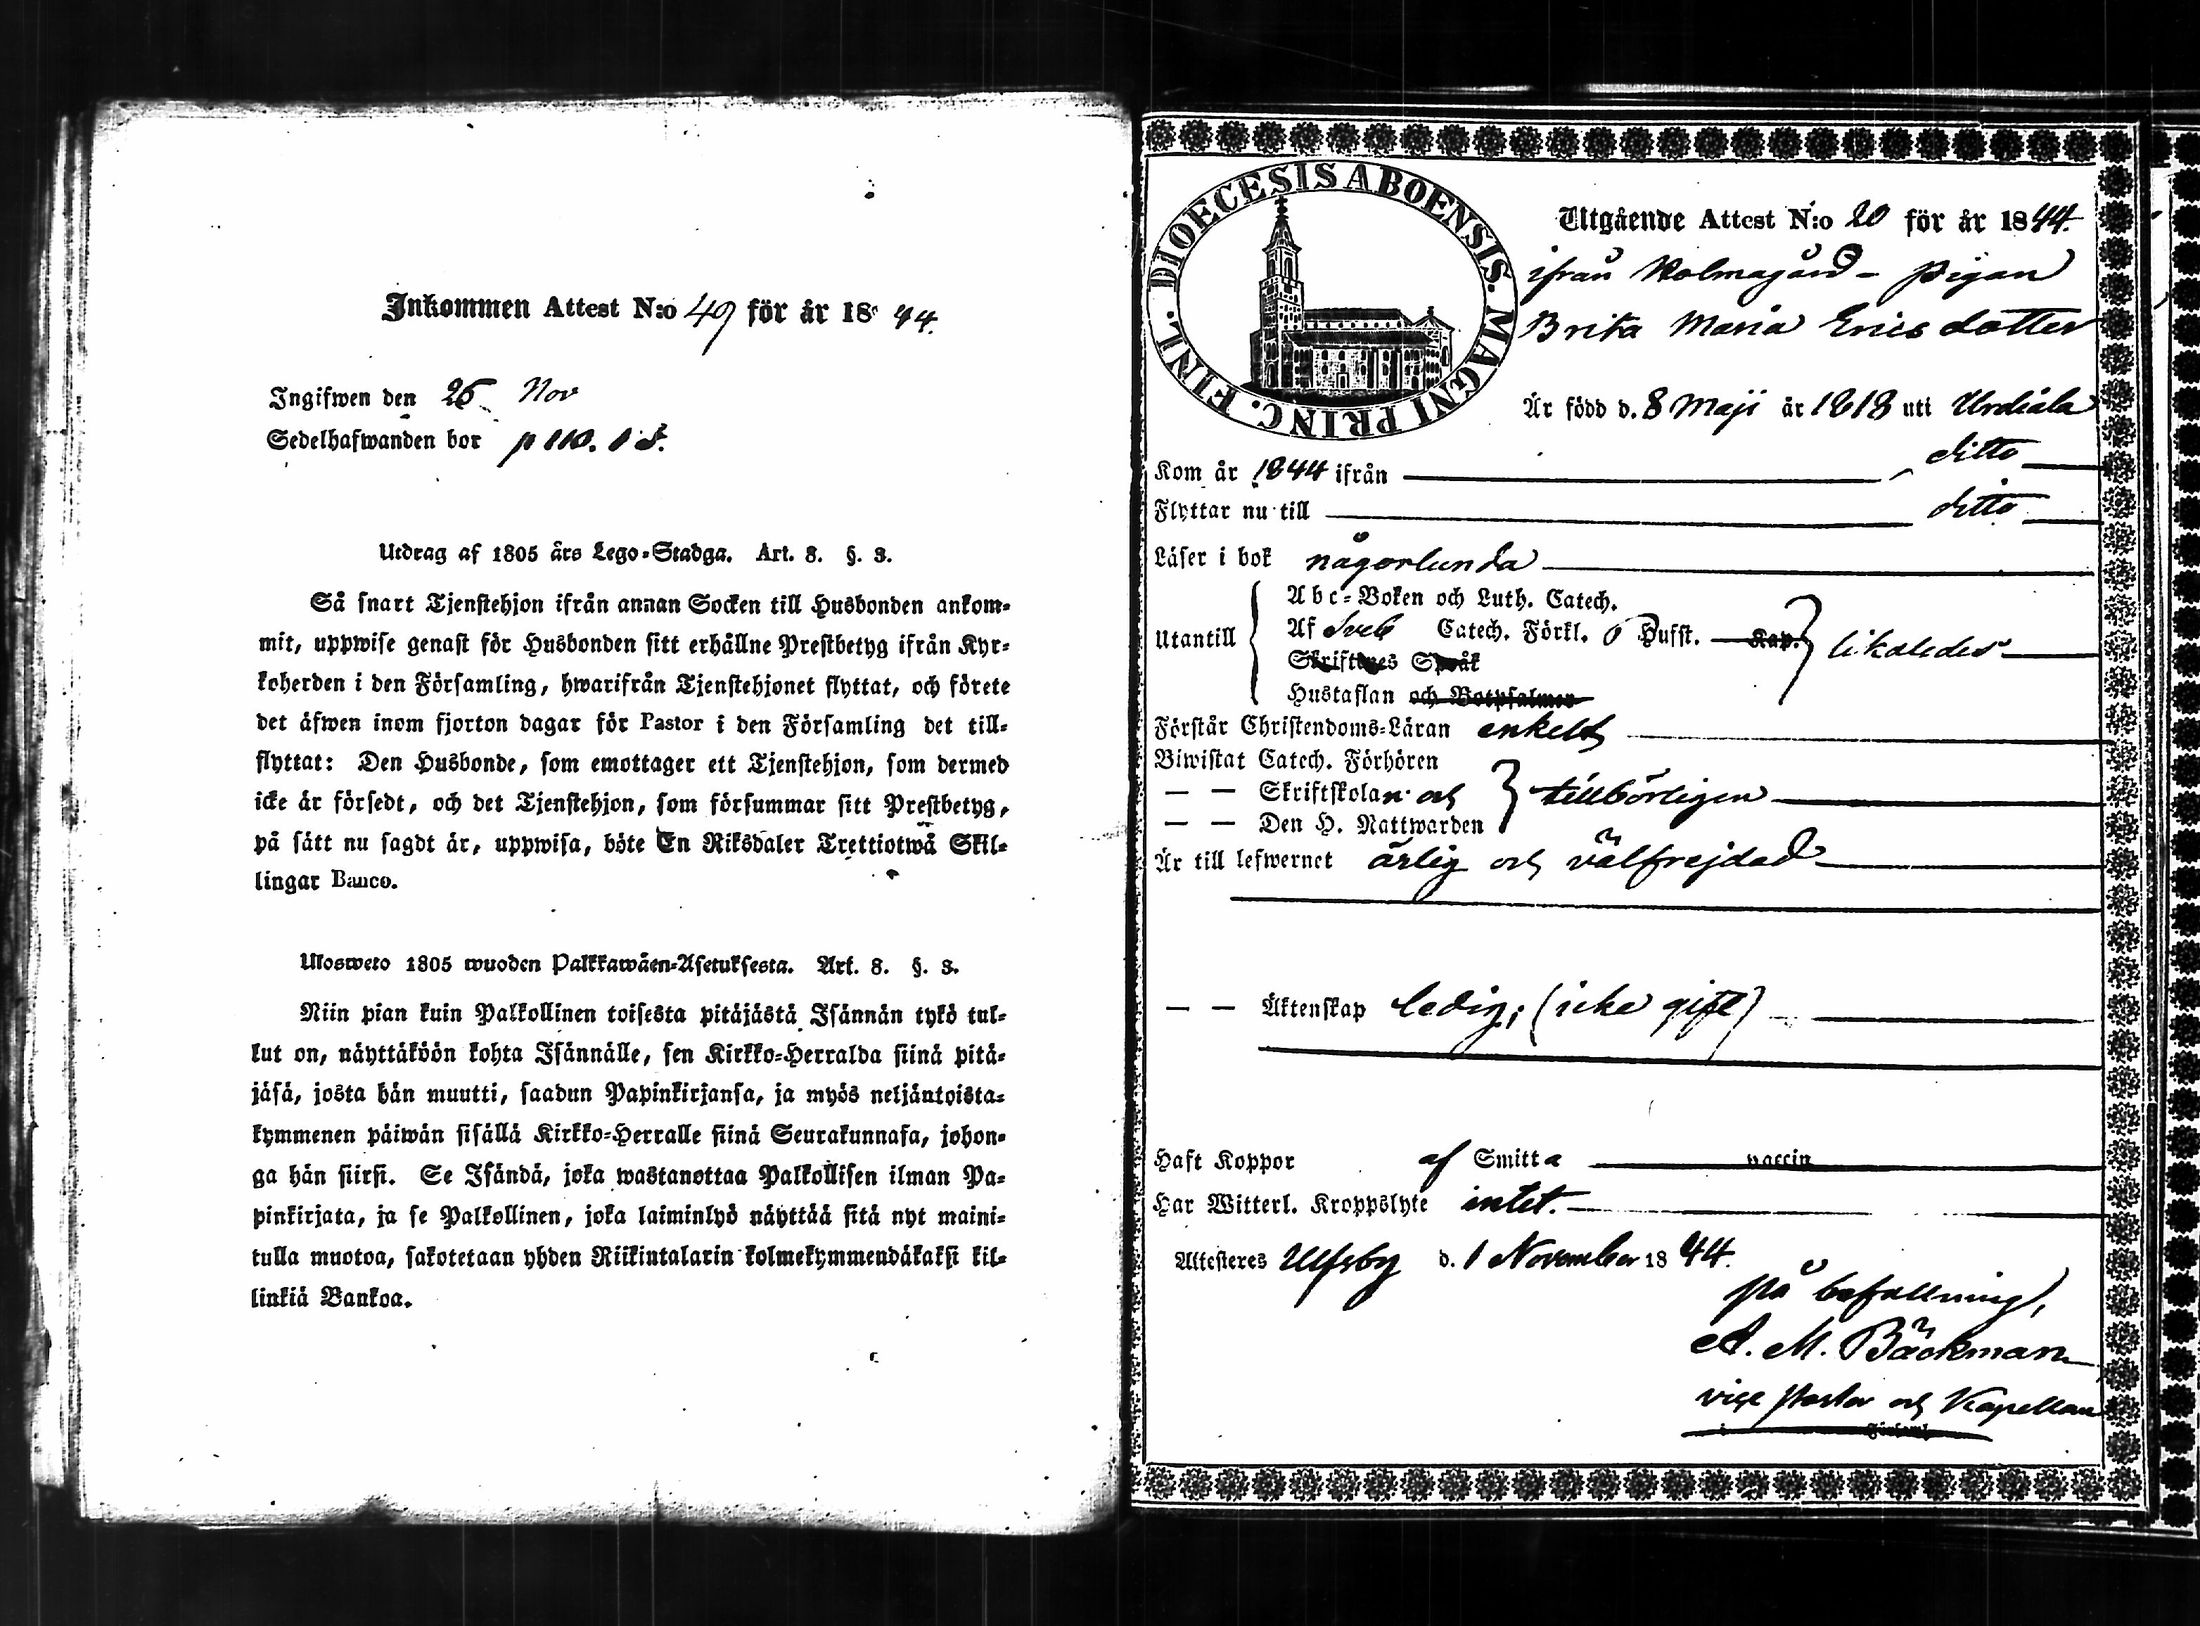 Inkommen Attest N:o 49 för år 1844.
Ingifwen den 26 Nov
Sedelhafwanden bor p 110.
Utdrag af 1805 års Lego-Stadga. Art. 8. §. 3.
Så snart Tjenstehjon ifrån annan Socken till Husbonden ankom-
mit, uppwise genast för Husbonden sitt erhållne Prestbetyg ifrån Kyr-
koherden i den Församling, hwarifrån Tjenstehjonet flyttat, och förete
det äfwen inom fjorton dagar för Pastor i den Församling det till-
flyttat: Den Husbonde, som emottager ett Tjenstehjon, som dermed
icke är försedt, och det Tjenstehjon, som försummar sitt Prestbetyg,
på sätt nu sagdt är, uppwisa, böte En Riksdaler Trettiotwå Skil-
lingar Banco.
Ulosweto 1805 wuoden Palkkawäen-Asetuksesta. Art. 8. §. 3.
Niin pian kuin Palkollinen toisesta pitäjästä Isännän tykö tul-
lut on, näyttäköön kohta Isännälle, sen Kirkko-Herralda siinä pitä-
jäsä, josta hän muutti, saadun Papinkirjansa, ja myös neljäntoista-
kymmenen päiwän sisällä Kirkko-Herralle siinä Seurakunnasa, johon-
ga hän siirsi. Se Isändä, joka wastanottaa Palkollisen ilman Pa-
pinkirjata, ja se Palkollinen, joka laiminlyö näyttää sitä nyt maini-
tulla muotoa, sakotetaan yhden Riikintalarin kolmekymmendäkaksi kil-
linkiä Bankoa.
DIOECESIS ABOENSIS. MAGNI PRINC. FINL.
Utgående Attest N:o 20 för år 1844.
ifrån Holmagård - pigan
Brita Maria Ericsdotter
Är född d. 8 Maji år 1818 uti Urdiala
Kom år 1844 ifrån ditto
Flyttar nu till ditto
Läser i bok någorlunda
Utantill
Abc-Boken och Luth. Catech.
Af Sveb Catech. Förkl. Hufst. Kap. likaledes
Skriftenes Språk
Hustaflan och Botpsalmer
Förstår Christendoms-Läran enkelt
Biwistat Catech. Förhören
— — Skriftskolan och tillbörligen
— — Den H. Nattwarden
Är till lefwernet ärlig och välfrejdad
— — Äktenskap ledig; (icke gift)
Haft Koppor af Smitta vaccin
Har Witterl. Kroppslyte intet.
Attesteres Ulfsby d. 1 November 1844.
på befallning,
A. M. Bäckman
vice pastor och Kapellan